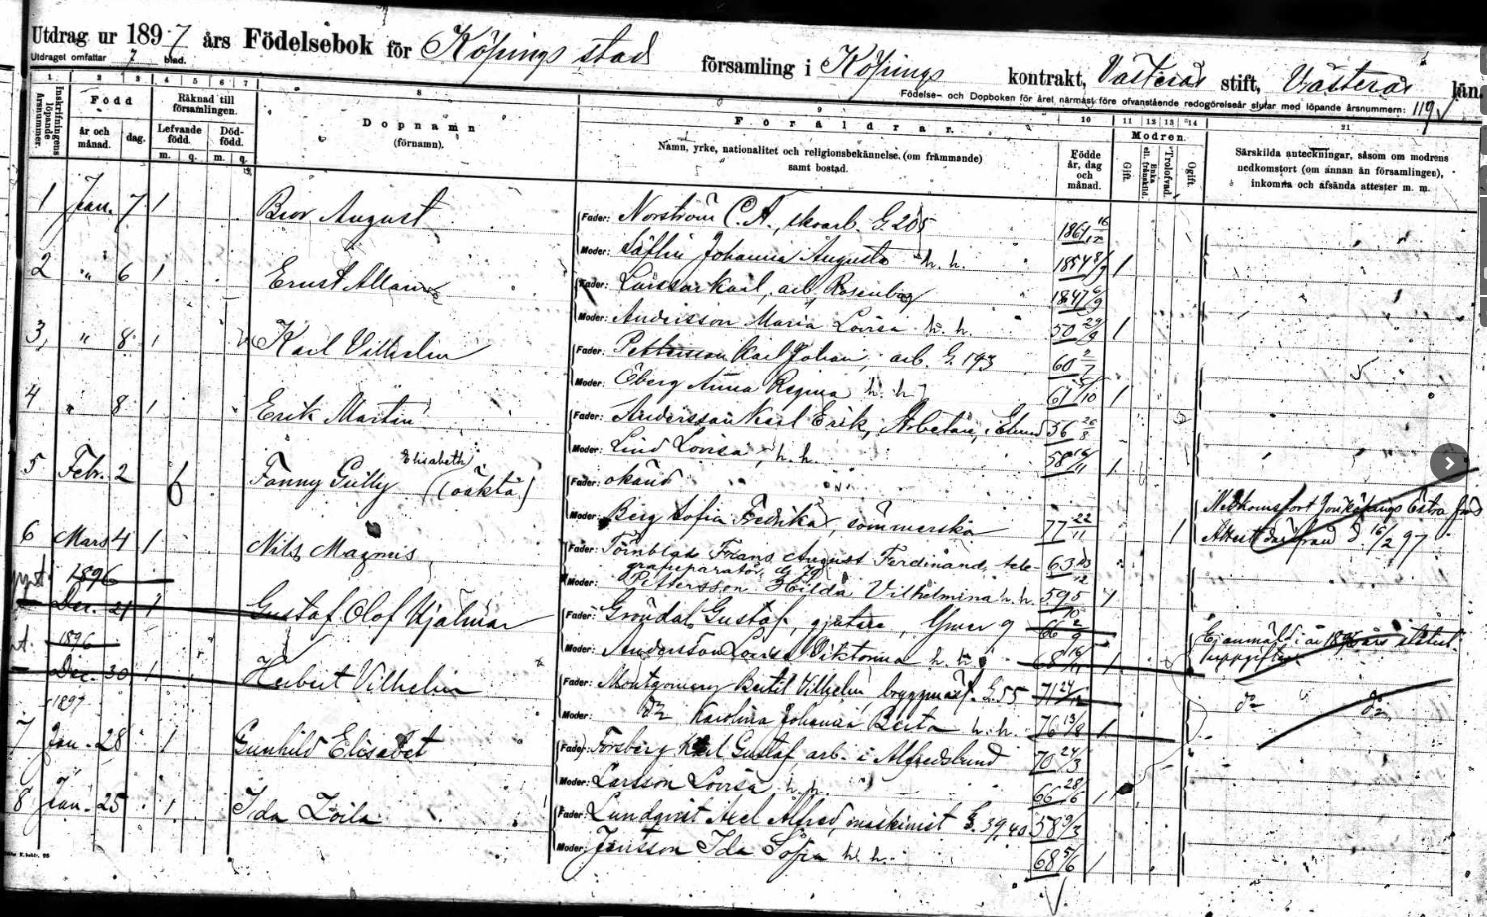 Utdrag ur 1897 års Födelsebok för Köpings stad församling i Köpings kontrakt, Västerås stift, Västerås län.
Utdraget omfattar 7 blad.
Födelse- och Dopboken för året närmast före ofvanstående redogörelseår slutar med löpande årsnummer: 119
1. 2 3 4 5 6 7 8 9 10 11 12 13 14 21
Inskrifningens löpande årsnummer.
Född
år och månad. dag.
Räknad till församlingen.
Lefvande född. Dödfödd.
m. q. m. q.
Dopnamn
(förnamn).
Föräldrar.
Namn, yrke, nationalitet och religionsbekännelse (om främmande)
samt bostad.
Födde år, dag och månad.
Modren.
Gift. Enka ell. frånskild. Trolofvad. Ogift.
Särskilda anteckningar, såsom om modrens
nedkomstort (om annan än församlingen),
inkomna och afsända attester m. m.
1 Jan. 7 1 Bror August Fader: Norström C. A., skoarb. G. 205 1861 16/12
Moder: Säflin Johanna Augusta h. h. 1854 1
2 " 6 1 Ernst Allan Fader: Larsson Karl, arb. Rosenborg 1847 6/9
Moder: Andersson Maria Lovisa h. h. 50 29/9 1
3, " 8 1 Karl Vilhelm Fader: Pettersson Karl Johan, arb. G. 193 60 2/7
Moder: Öberg Anna Regina h. h. 61 /10 1
4 " 8 1 Erik Martin Fader: Andersson Karl Erik, Arbetare, 56 26/8
Moder: Lind Lovisa, h. h. 58 16/11 1
5 Febr. 2 Fanny Gully Elisabeth (oäkta) Fader: okänd
Moder: Berg Sofia Fredrika, sömmerska 77 22/11 1 Nedkomstort Jönköpings Östra förs.
Attest därifrån d. 16/2 97
6 Mars 4 1 Nils Magnus Fader: Törnblad Frans August Ferdinand, tele-
grafreparatör, G. 63 /12
Moder: Pettersson Hilda Vilhelmina h. h. 59 5/10 1
1896
Dec. 21 1 Gustaf Olof Hjalmar Fader: Gröndal Gustaf, gjutare, Ymer 9 66 2/9
Moder: Andersson Lovisa Viktorina h. h. 68 16/11 1 Ej anmäld i 1896 års statist.
uppgifter
1896
Dec. 30 1 Herbert Vilhelm Fader: Montgomery Bertil Vilhelm bryggmäst. G. 55 71 27/12
Moder: Karolina Johanna Berta h. h. 76 13/8 1 do do
1897
7 Jan. 28 1 Gunhild Elisabet Fader: Forsberg Karl Gustaf arb. i Alfredslund 70 24/3
Moder: Larsson Lovisa h. h. 66 28/6 1
8 Jan. 25 1 Ida Zoila Fader: Lundqvist Axel Alfred, maskinist G. 39, 40 58 9/3
Moder: Jansson Ida Sofia h. h. 68 5/6 1